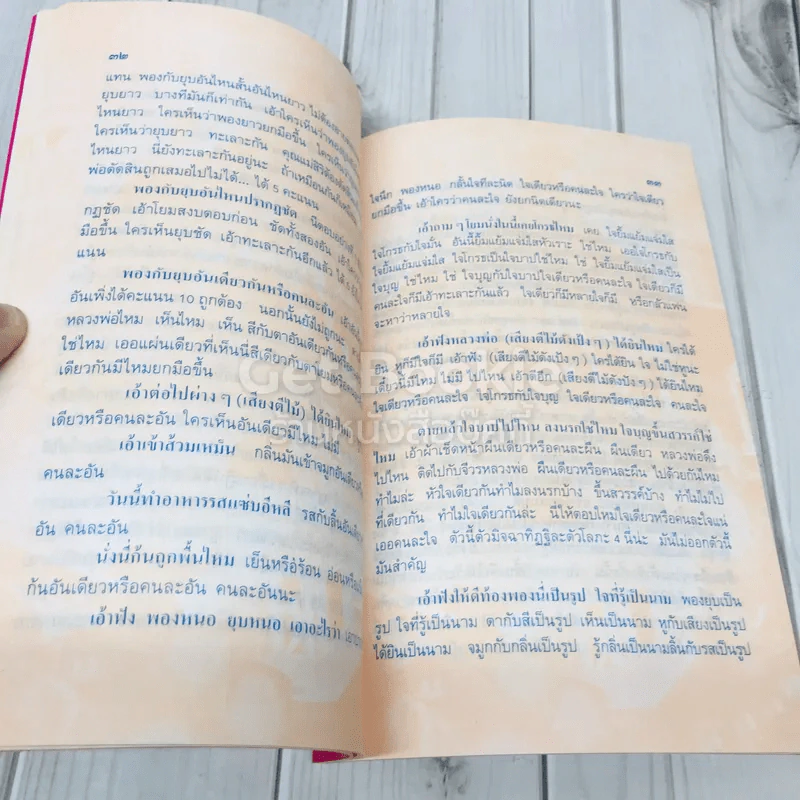 ๓๒
แทน พองกับยุบอันไหนสั้นอันไหนยาว ไม่ต้อง
ยุบยาว บางทีมันก็เท่ากัน เอ้าใครเห็นว่าพอง
ไหนยาว ใครเห็นว่าพองยาวยกมือขึ้น ใครเห็น
ใครเห็นว่ายุบยาว ทะเลาะกัน คุณแม่สิริต้อง
ไหนยาว นี่ยังทะเลาะกันอยู่นะ ถ้าเหมือนกันก็
พ่อตัดสินถูกเสมอไปไม่ได้... ได้ ๕ คะแนน
พองกับยุบอันไหนปรากฏชัด นิดตอบอย่าง
กฏชัด เอ้าโยมสงบตอบก่อน ชัดทั้งสองอัน เอ้าใคร
มือขึ้น ใครเห็นยุบชัด เอ้าทะเลาะกันอีกแล้ว ได้ ๕
แนน
พองกับยุบอันเดียวกันหรือคนละอัน
อันเพิ่งได้คะแนน 10 ถูกต้อง นอกนั้นยังไม่ถูกนะ
หลวงพ่อไหม เห็นไหม เห็น สีกับตาอันเดียวกันหรือ
ใช่ไหม เออแผ่นเดียวที่เห็นนี่สีเดียวกับตา
เดียวกันมีไหมยกมือขึ้น
เอ้าต่อไปผ่าง ๆ (เสียงตีไม้) ได้ยิน
เดียวหรือคนละอัน ใครเห็นอันเดียวมีไหม ไม่มี
เอ้าเข้าส้วมเหม็น กลิ่นมันเข้าจมูกอันเดียว
คนละอัน
วันนี้ทำอาหารรสแซ่บอีหลี รสกับลิ้นอัน
อัน คนละอัน
นั่งนี่ก้นถูกพื้นไหม เย็นหรือร้อน อ่อนหรือ
ก้นอันเดียวหรือคนละอัน คนละอันนะ
เอ้าฟัง พองหนอ ยุบหนอ เอาอะไรว่า
๓๓
ใจนึก พองหนอ กลั้นใจทีละนิด ใจเดียวหรือคนละใจ ใครว่าใจเดียว
ยกมือขึ้น เอ้าใครว่าคนละใจ ยังยกนิดเดียวนะ
เอ้าถาม ๆ โยมนั่งในนี้เคยโกรธไหม เคย ใจยิ้มแย้มแจ่มใส
ใจโกรธกับใจมั่น อันนี้ยิ้มแย้มแจ่มใสหัวเราะ ใช่ไหม เออใจโกรธกับ
ใจยิ้มแย้มแจ่มใส ใจโกรธเป็นใจบาปใช่ไหม ใช่ ใจยิ้มแย้มแจ่มใสเป็น
ใจบุญ ใช่ไหม ใช่ ใจบุญกับใจบาปใจเดียวหรือคนละใจ ใจเดียวก็มี
คนละใจก็มีเอ้าทะเลาะกันแล้ว ใจเดียวก็มีหลายใจก็มี หรือกลัวแฟน
จะหาว่าหลายใจ
เอ้าฟังหลวงพ่อ (เสียงตีไม้ดังเป้ง ๆ) ได้ยินไหม ใครได้
ยิน หูก็มีใจก็มี เอ้าฟัง (เสียงตีไม้ดังเป้ง ๆ) ใครได้ยิน ใจ ไม่ใช่หูนะ
เดี๋ยวนี้มีไหม ไม่มี ไปไหน เอ้าตีอีก (เสียงตีไม้ดังปัง ๆ) ได้ยินไหม
ใจเดียวหรือคนละใจ ใจโกรธกับใจบุญ ใจเดียวหรือคนละใจ คนละใจ
ตายแล้วใจบาปไปไหน ลงนรกใช่ไหม ใจบุญขึ้นสวรรค์ใช่
ไหม เอ้าผ้าเช็ดหน้าผืนเดียวหรือคนละผืน ผืนเดียว หลวงพ่อดึง
ไปไหน ติดไปกับจีวรหลวงพ่อ ผืนเดียวหรือคนละผืน ไปด้วยกันไหม
ทำไมล่ะ หัวใจเดียวกันทำไมลงนรกบ้าง ขึ้นสวรรค์บ้าง ทำไมไม่ไป
ที่เดียวกัน ทำไมใจเดียวกันล่ะ นี่ให้ตอบใหม่ใจเดียวหรือคนละใจแน่
เออคนละใจ ตัวนี้ตัวมิจฉาทิฏฐิละตัวโลภะ 4 นี่นะ มันไม่ออกตัวนี้
มันสำคัญ
เอ้าฟังให้ดีท้องพองนี่เป็นรูป ใจที่รู้เป็นนาม พองยุบเป็น
รูป ใจที่รู้เป็นนาม ตากับสีเป็นรูป เห็นเป็นนาม หูกับเสียงเป็นรูป
ได้ยินเป็นนาม จมูกกับกลิ่นเป็นรูป รู้กลิ่นเป็นนามลิ้นกับรสเป็นรูป